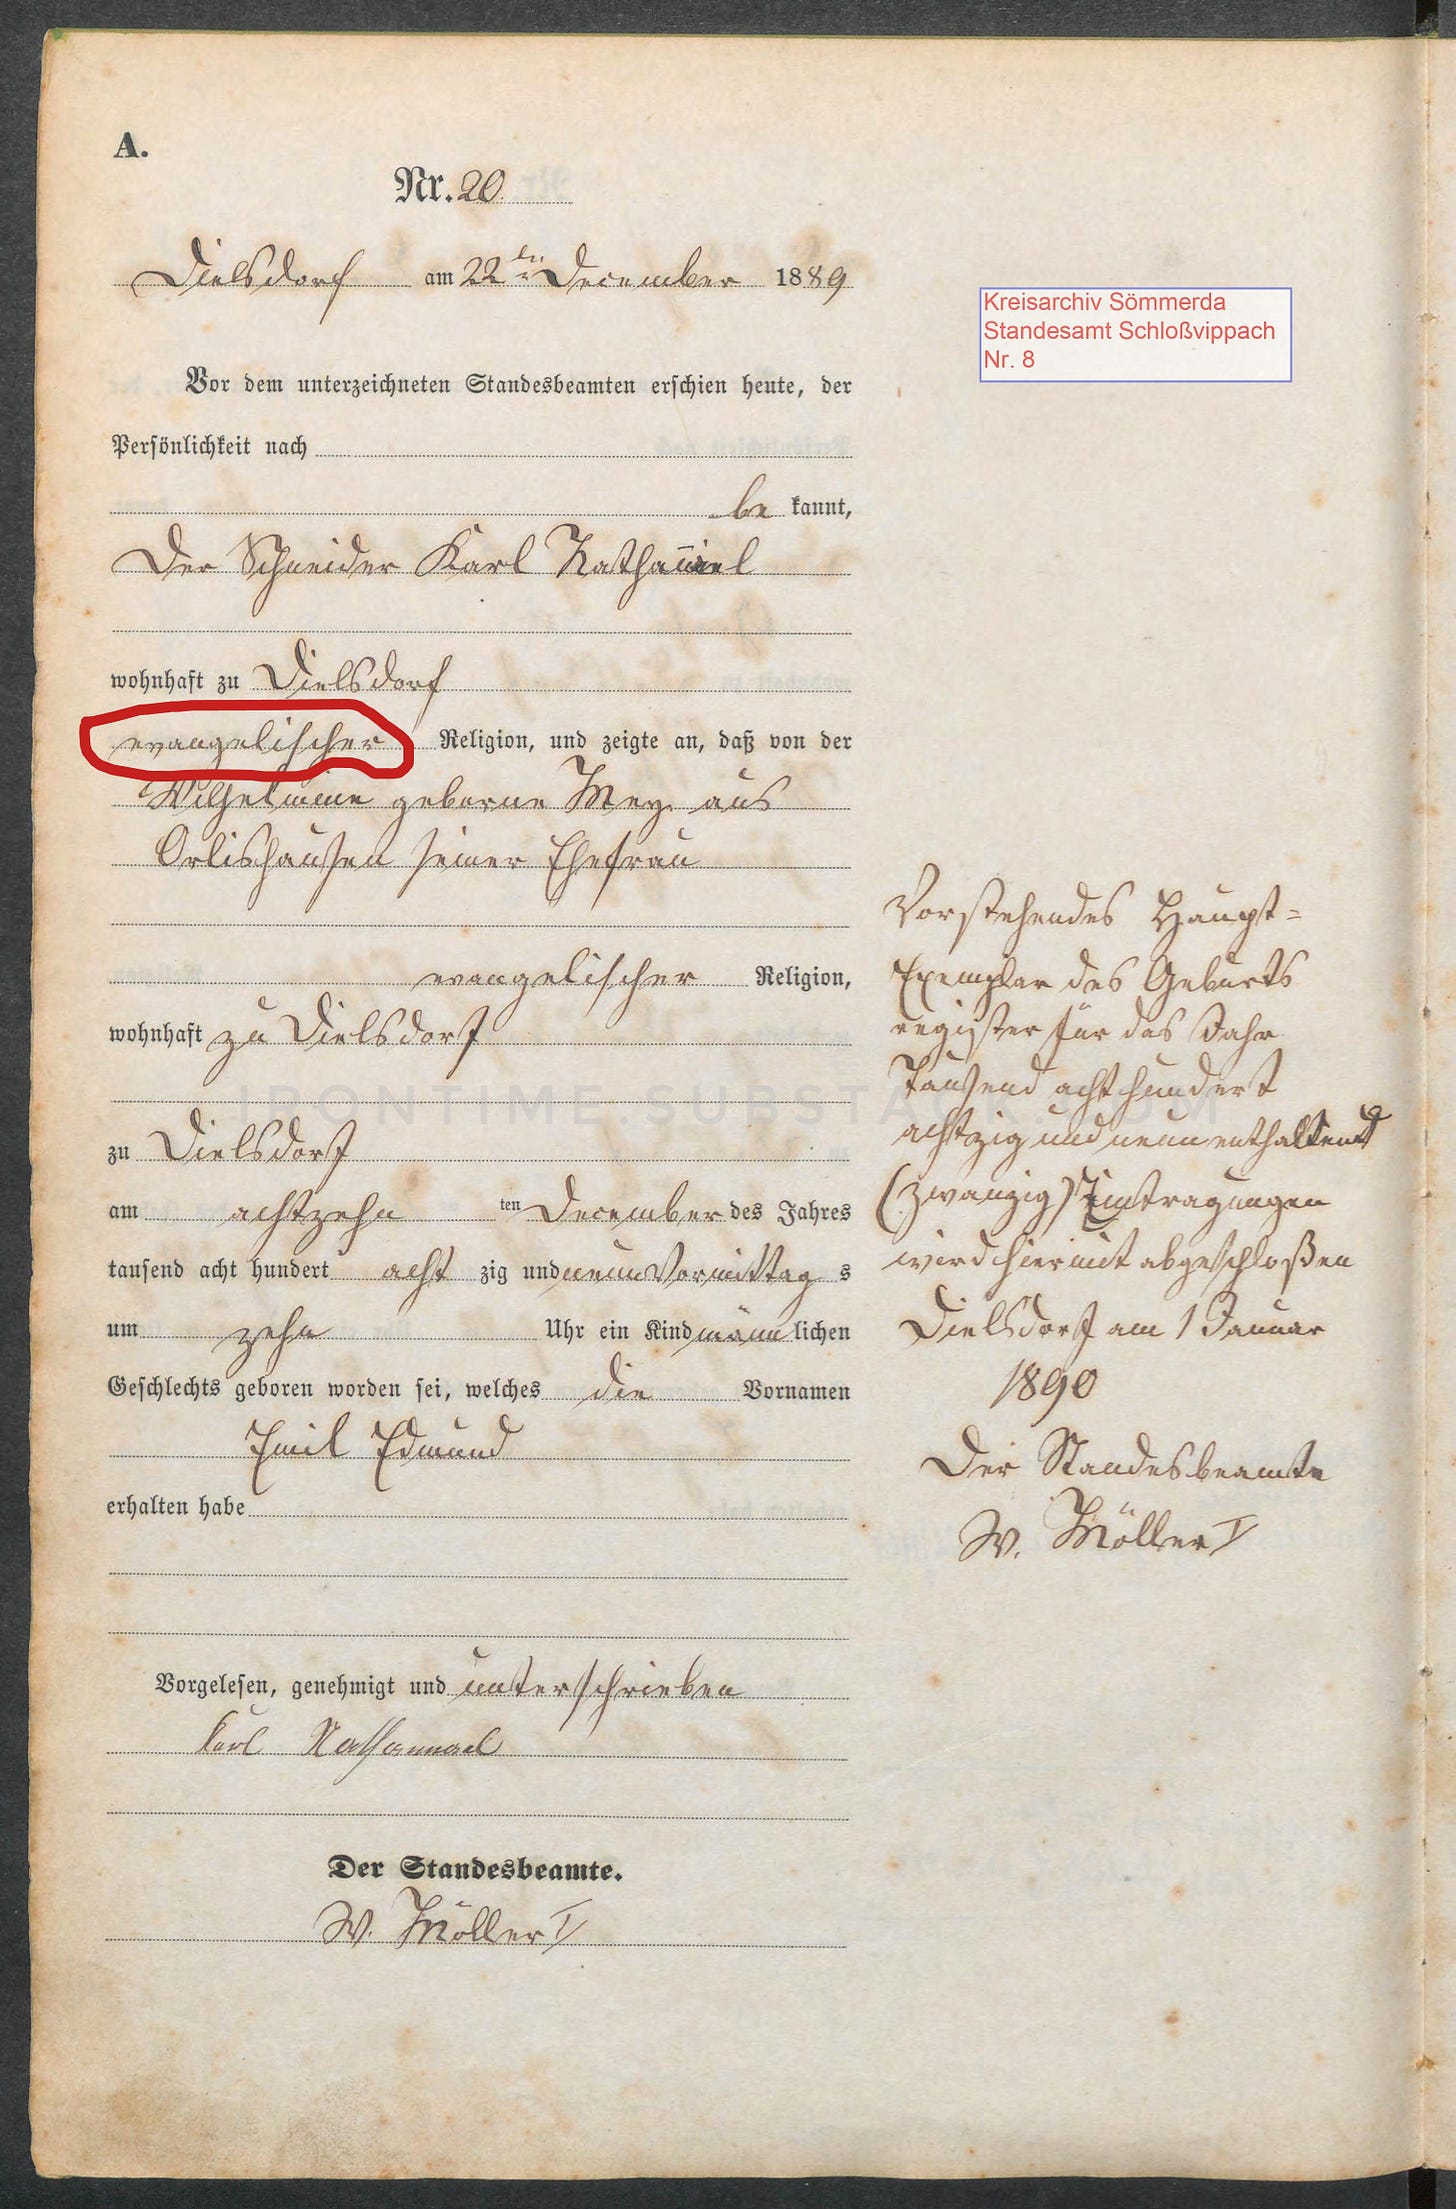 A.
Nr. 20.
Dielsdorf am 22ten December 1889
Kreisarchiv Sömmerda
Standesamt Schloßvippach
Nr. 8
Vor dem unterzeichneten Standesbeamten erschien heute, der
Persönlichkeit nach
be kannt,
Der Schneider Karl Nathanael
wohnhaft zu Dielsdorf
evangelischer Religion, und zeigte an, daß von der
Wilhelmine geborne Mey aus
Orlishausen seiner Ehefrau
evangelischer Religion,
wohnhaft zu Dielsdorf
zu Dielsdorf
am achtzehn ten December des Jahres
tausend acht hundert acht zig und neun Vormittag s
um zehn Uhr ein Kind männ lichen
Geschlechts geboren worden sei, welches die Vornamen
Emil Edmund
erhalten habe
Vorgelesen, genehmigt und unterschrieben
Karl Nathanael
Der Standesbeamte.
W. Möller I
Vorstehendes Haupt=
Exemplar des Geburts
register für das Jahr
Tausend acht hundert
achtzig und neun enthaltend
(zwanzig) Eintragungen
wird hiermit abgeschloßen
Dielsdorf am 1 Januar
1890
Der Standesbeamte
W. Möller I
IRONTIME.SUBSTACK.COM